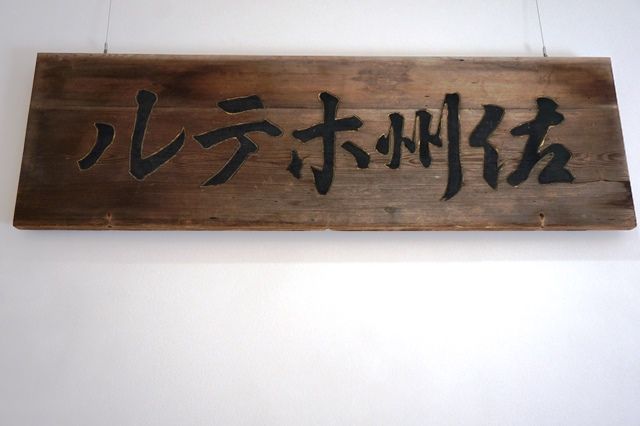 佐州ホテル